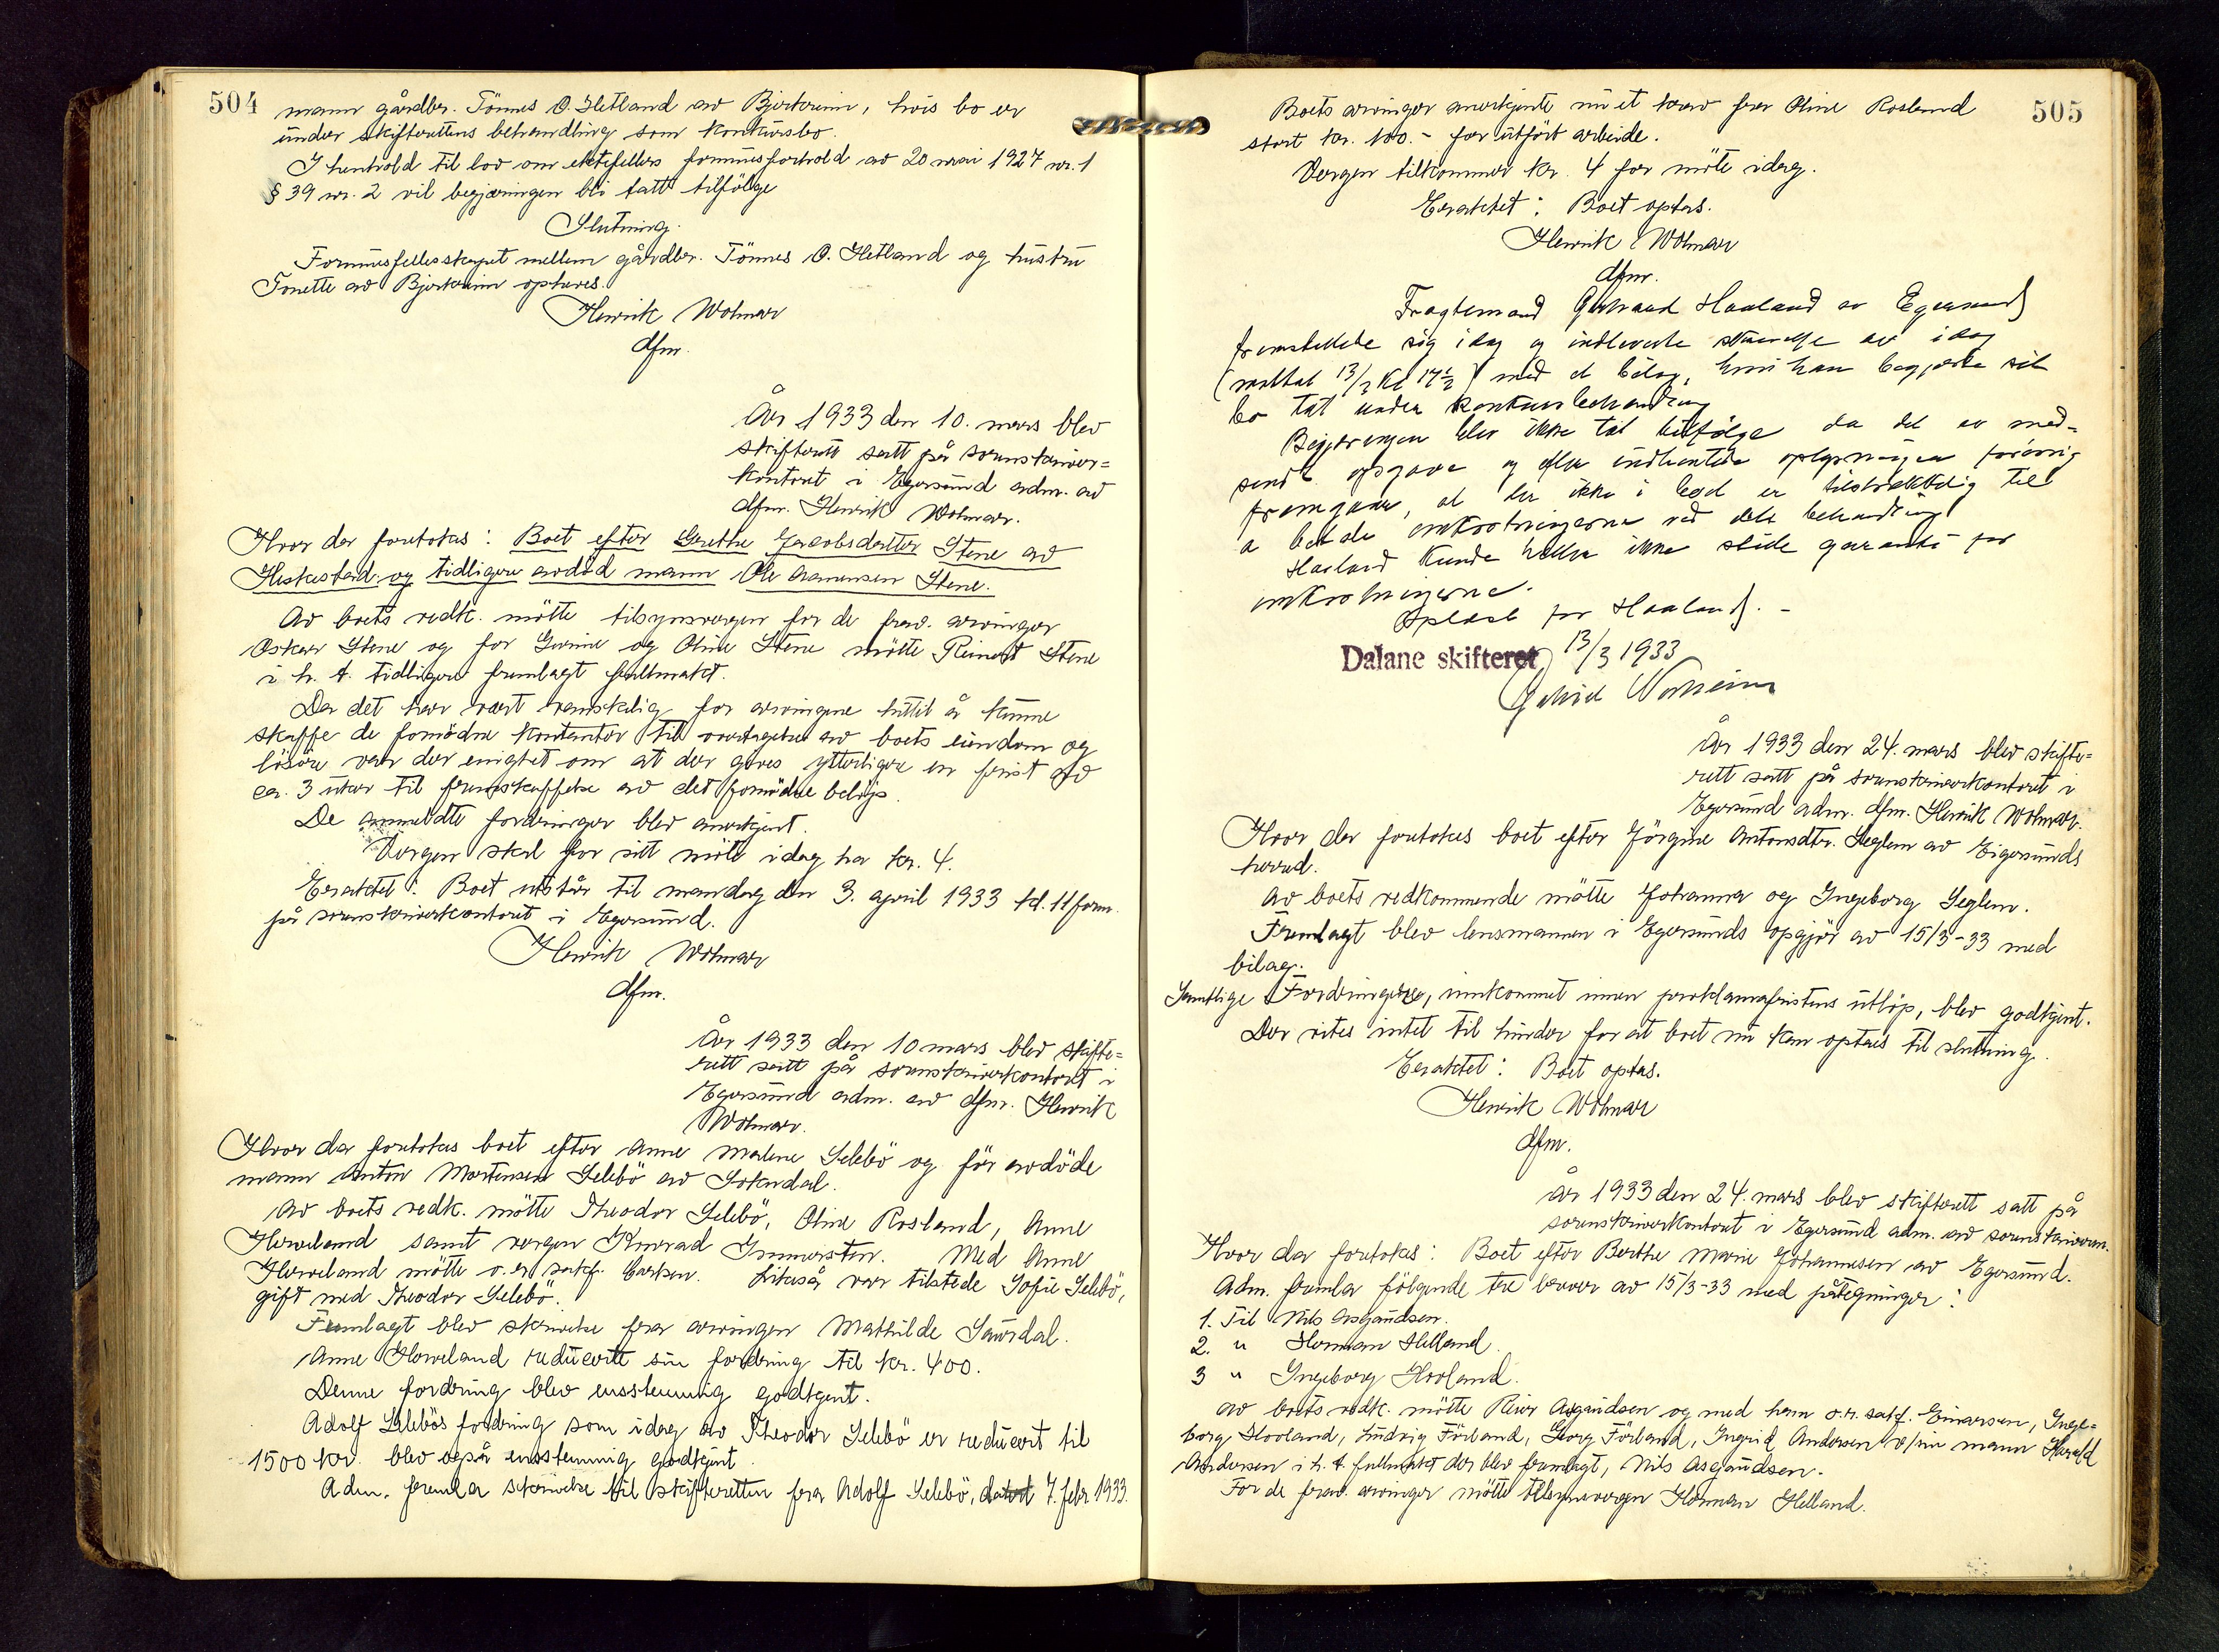 504
mann gårdbr. Tönnes O. Hetland av Bjerkreim, hvis bo er
under skifterettens behandling som konkursbo.
I henhold til lov om ektefellers formuesforhold av 20 mai 1927 nr. 1
§ 39 nr. 2 vil begjæringen bli tatt tilfölge
Slutning.
Formuesfellesskapet mellem gårdbr. Tönnes O. Hetland og hustru
Tonette av Bjerkreim opheves.
Henrik Wolmar
dfm.
År 1933 den 10. mars blev
skifterett satt på sorenskriver=
kontoret i Egersund adm. av
dfm. Henrik Wolmar.
Hvor da foretokes: Boet efter Grethe Jacobsdatter Stene av
Heskestad og tidligere avdöd mann Ole Aamensen Stene.
Av boets vedk. mötte tilsynsvergen for de frav. arvinger
Oskar Stene og for Gurine og Oline Stene mötte Reinert Stene
i h. t. tidligere fremlagt fullmakt.
Da det har vært vanskelig for arvingene hittil å kunne
skaffe de fornödne kontanter til overtagelse av boets eiendom og
lösöre var der enighet om at der gives ytterligere en frist på
ca. 3 uker til fremskaffelse av det fornödne belöp.
De anmeldte fordringer blev anerkjent.
Vergen skal for sitt möte idag ha kr. 4.
Eraktet: Boet utstår til mandag den 3. april 1933 kl. 11 form.
på sorenskriverkontoret i Egersund.
Henrik Wolmar
dfm.
År 1933 den 10 mars blev skifte=
rett satt på sorenskriverkontoret i
Egersund adm. av dfm. Henrik
Wolmar.
Hvor da foretokes boet efter Anne Malene Selebö og för avdöde
mann Anton Mortensen Selebö av Sokndal.
Av boets vedk. mötte Theodor Selebö, Oline Rosland, Anne
Hoveland samt vergen Konrad Immerstein. Med Anne
Hoveland mötte o.r. sakf. Carlsen. Likeså var tilstede Sofie Selebö,
gift med Theodor Selebö.
Fremlagt blev skrivelse fra arvingen Mathilde Saurdal.
Anne Hoveland reducerte sin fordring til kr. 400.
Denne fordring blev enstemmig godkjent.
Adolf Selebös fordring som idag av Theodor Selebö er reducert til
1500 kr. blev også enstemmig godkjent.
Adm. fremla skrivelse til skifteretten fra Adolf Selebö, datert 7. febr. 1933.
505
Boets arvinger anerkjente nu et krav fra Oline Rosland
stort kr. 100.- for utfört arbeide.
Vergen tilkommer kr. 4 for möte idag.
Eraktet: Boet optas.
Henrik Wolmar
dfm.
Fragtemand Gerhard Haaland av Egersund
fremstillede sig idag og indleverte skrivelse av idag
(mottat 13/3 Kl 14½) med et bilag, hvori han begjærte sit
bo tat under konkursbehandling
Begjæringen blev ikke tat tilfölge da det av med=
sendt opgave og efter indhentede oplysninger forövrig
fremgaar, at der ikke i boet er tilstrækkelig til
a betale omkostningerne ved dets behandling
Haaland kunde heller ikke stille garanti for
omkostningerne.
Oplæst for Haaland. -
Dalane skifteret, 13/3 1933
År 1933 den 24. mars blev skifte=
rett satt på sorenskriverkontoret i
Egersund adm. dfm. Henrik Wolmar.
Hvor da foretokes boet efter Jörgine Antonsdtr. Seglem av Eigersunds
herred.
Av boets vedkommende mötte Johanna og Ingeborg Seglem.
Fremlagt blev lensmannen i Egersunds opgjör av 15/3-33 med
bilag.
Samtlige Fordringer, innkommet innen proklamafristens utlöp, blev godkjent.
Der vites intet til hinder for at boet nu kan optaes til slutning.
Eraktet: Boet optas.
Henrik Wolmar
dfm.
År 1933 den 24. mars blev skifterett satt på
sorenskriverkontoret i Egersund adm. av sorenskriveren.
Hvor da foretokes: Boet efter Berthe Marie Johannesen av Egersund.
Adm. fremla fölgende tre brever av 15/3-33 med påtegninger:
1. Til Nils Asgaudsen.
2. " Herman Helland.
3 " Ingeborg Hovland.
Av boets vedk. mötte Peier Asgaudsen og med ham o.r. sakf. Einarsen, Inge=
borg Hovland, Ludvig Förland, Georg Förland, Ingrid Andersen v/sin mann Harald
Andersen i h. t. fullmakt der blev fremlagt, Nils Asgaudsen.
For de frav. arvinger mötte tilsynsvergen Herman Helland.